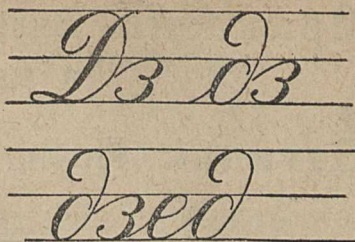 Дз дз
дзед